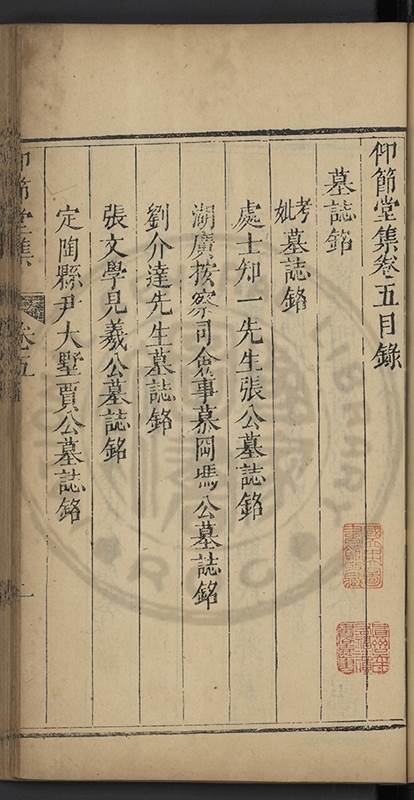 仰節堂集卷五目錄
墓誌銘
考妣墓誌銘
處士知一先生張公墓誌銘
湖廣按察司僉事慕岡馮公墓誌銘
劉介達先生墓誌銘
張文學見羲公墓誌銘
定陶縣尹大墅賈公墓誌銘
仰節堂集
卷五
一